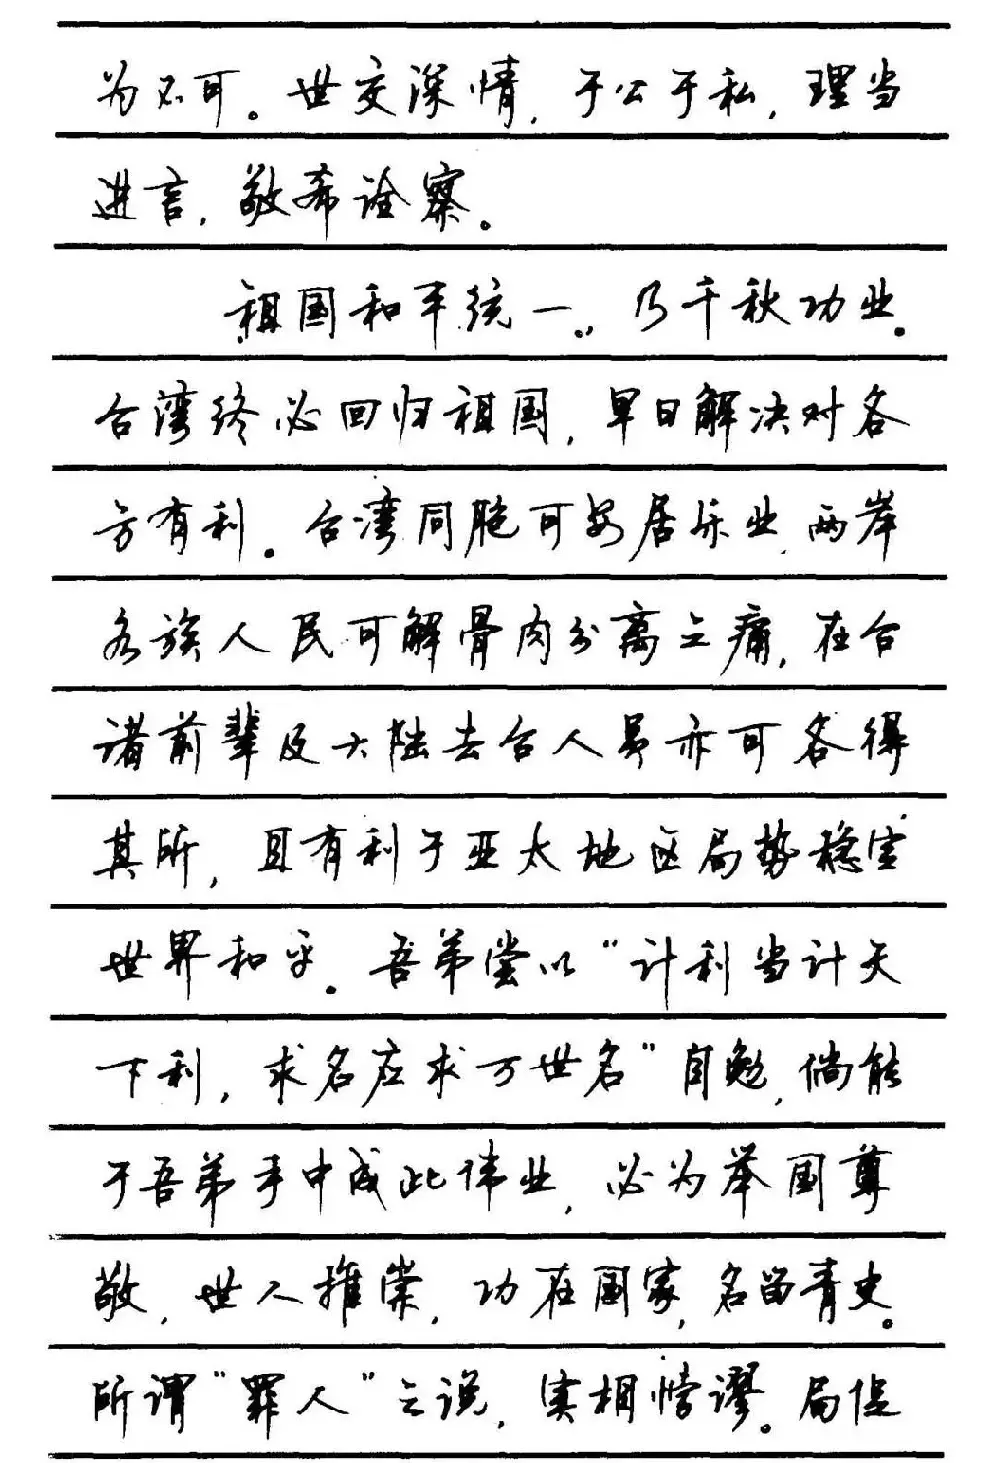 为不可。世交深情,于公于私,理当
进言,敬希诠察。
祖国和平统一,乃千秋功业。
台湾终必回归祖国,早日解决对各
方有利。台湾同胞可安居乐业,两岸
各族人民可解骨肉分离之痛,在台
诸前辈及大陆去台人员亦可各得
其所,且有利于亚太地区局势稳定
世界和平。吾弟尝以“计利当计天
下利,求名应求万世名”自勉,倘能
于吾弟手中成此伟业,必为举国尊
敬,世人推崇,功在国家,名留青史。
所谓“罪人”之说,实相悖谬。局促